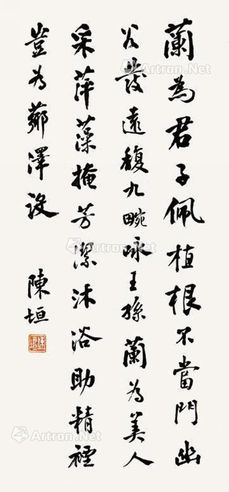 蘭為君子佩植根不當門幽
谷發遠馥九畹咏王孫蘭為美人
采萍藻掩芳潔沐浴助精禋
豈為薌澤設
陳垣
Artron.Net
Artron.Net
Artron.Net
Artron.Net